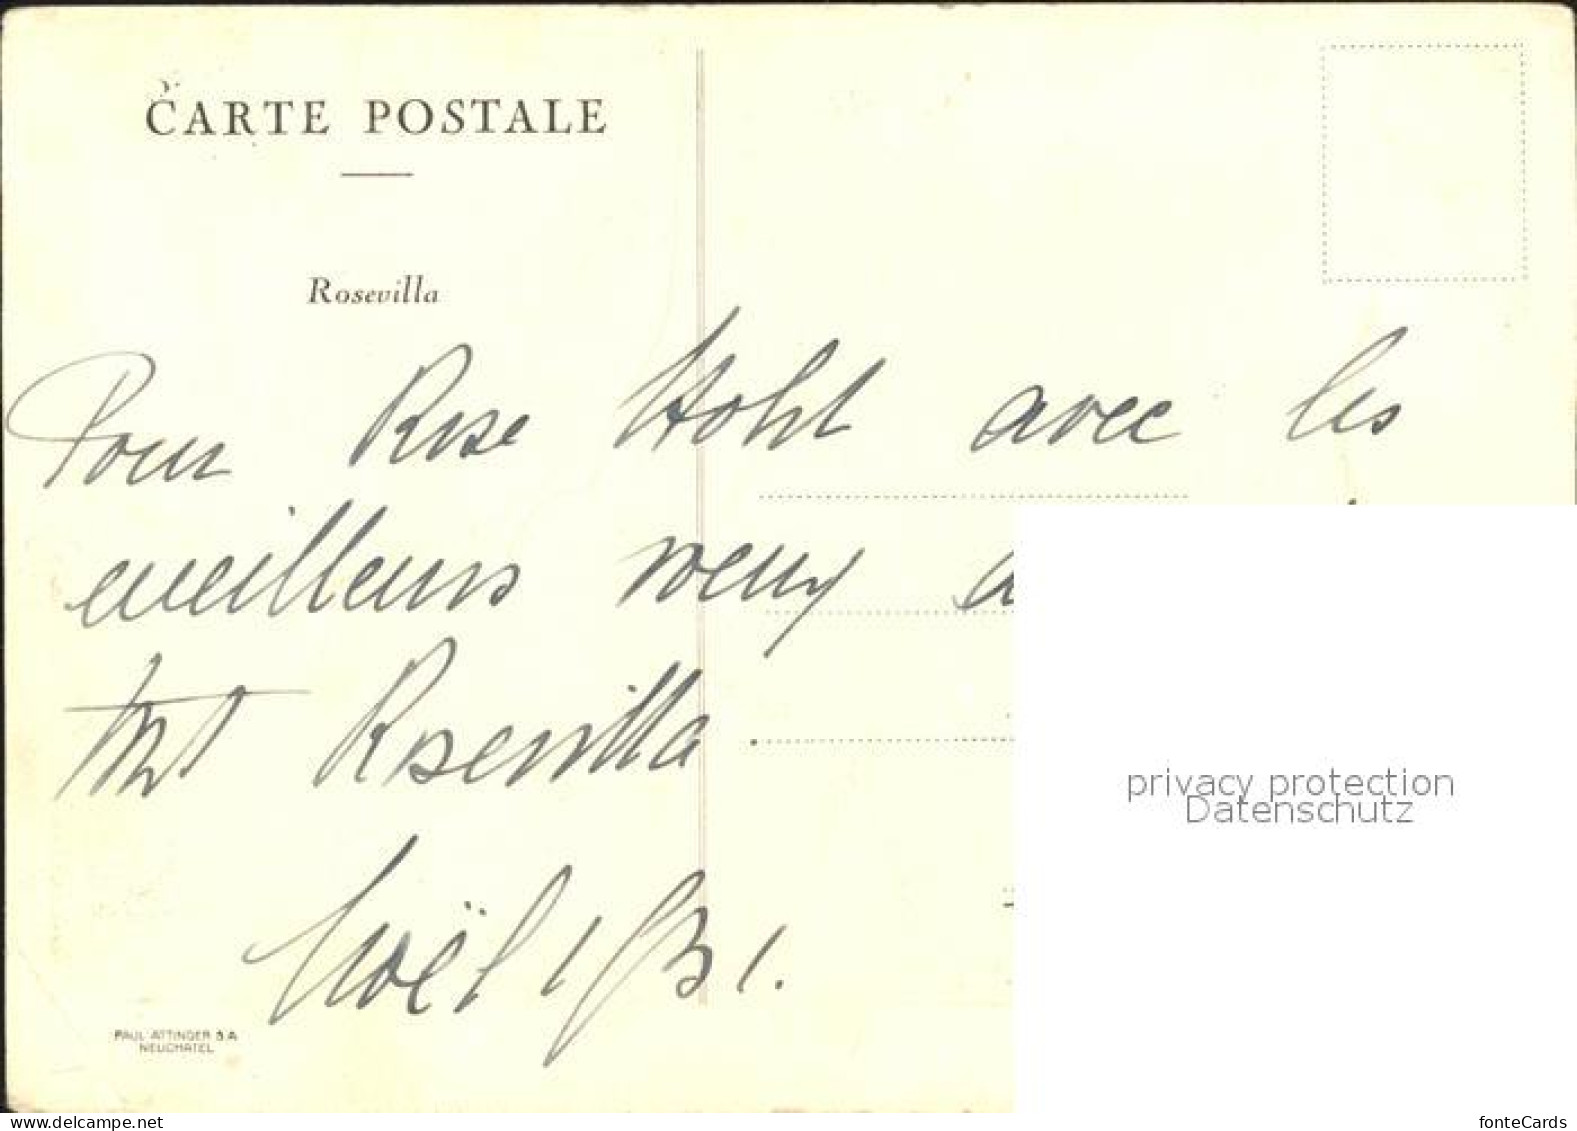 CARTE POSTALE
Rosevilla
Pour Rose Hohl avec les
meilleurs voeux
Rosevilla
Noël 1931.
PAUL ATTINGER S.A.
NEUCHATEL
privacy protection
Datenschutz
www.delcampe.net
fonteCards